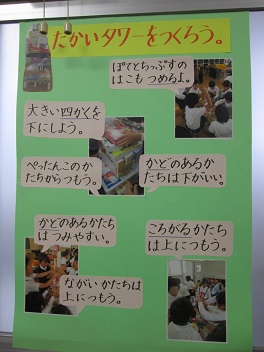 たかいタワーをつくろう。
ぽてとちっぷすの
はこもつめるよ。
大きい四かくを
下にしよう。
ぺったんこのか
たちからつもう。
かどのあるか
たちは下がいい。
かどのあるかたち
はつみやすい。
ころがるかたち
は上につもう。
ながいかたちは
上につもう。